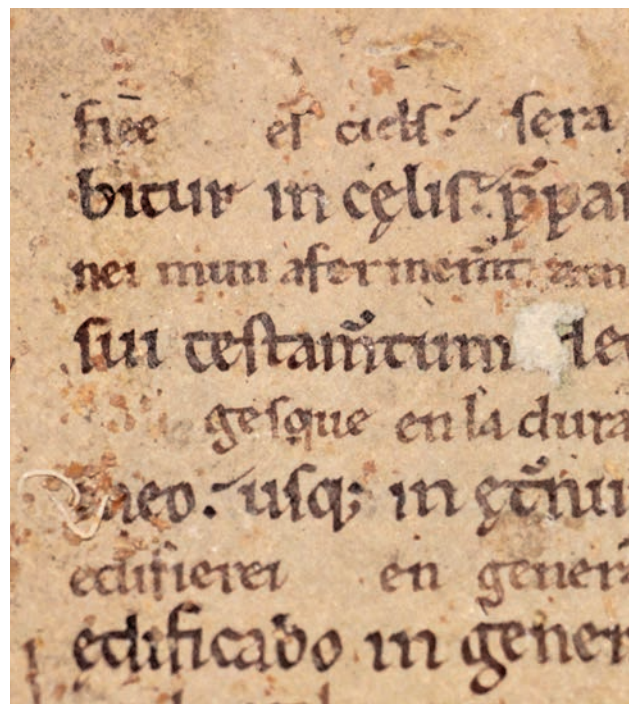 fiee es ciels sera
bitur in cęlis. p̄par
nei mun afermemt
sui testam̄tum
gesque en la dura
meo. usq; in ęt̄nu
edifierei en gener
edificabo in gener